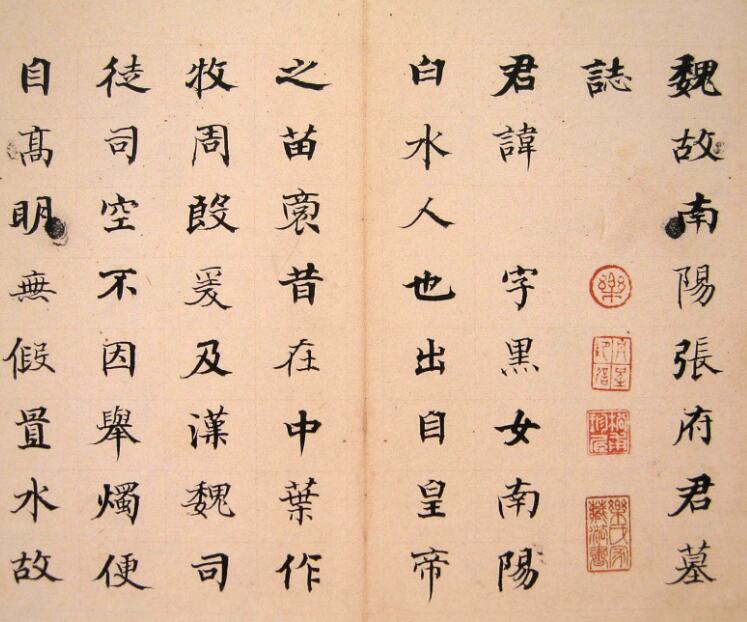 魏故南陽張府君墓
誌
樂
君諱 字黑女南陽
白水人也出自皇帝
之苗裔昔在中葉作
牧周殷爰及漢魏司
徒司空不因舉燭便
自髙眀無假置水故